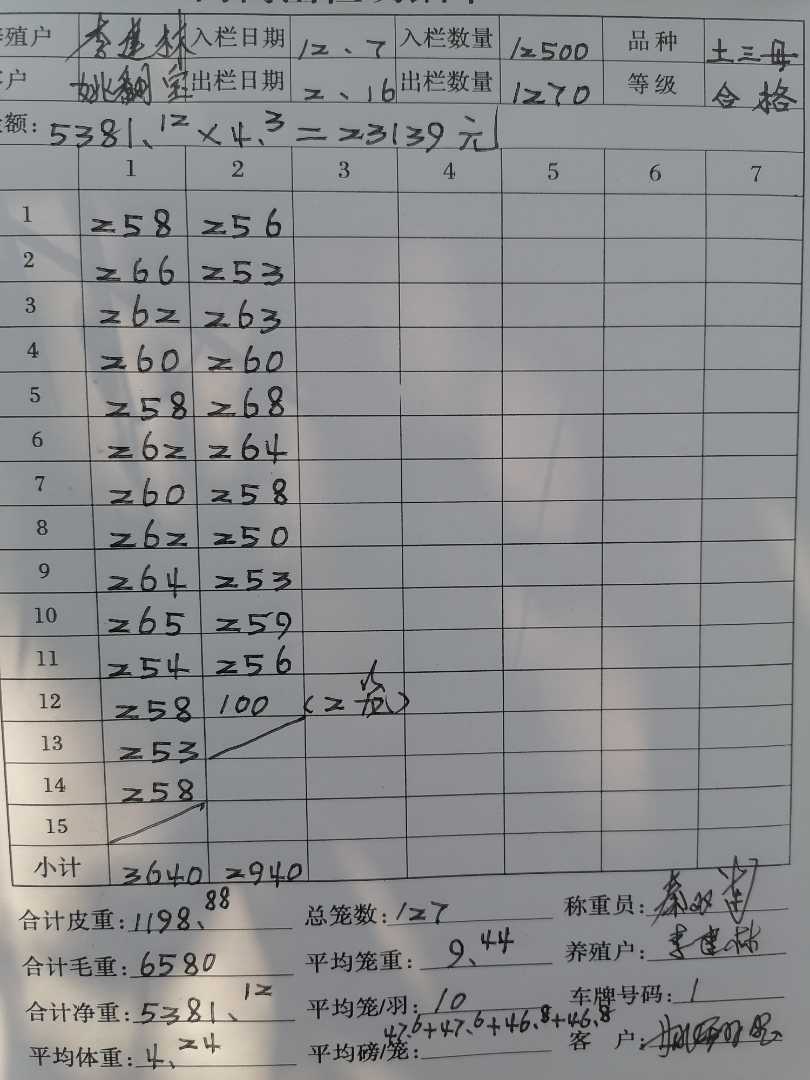 殖户 李建林 入栏日期 12、7 入栏数量 12500 品种 土三母
户 姚翻宝 出栏日期 2、16 出栏数量 1270 等级 合格
额: 5381、12 × 4.3 = 23139元
1 2 3 4 5 6 7
1 258 256
2 266 253
3 262 263
4 260 260
5 258 268
6 262 264
7 260 258
8 262 250
9 264 253
10 265 259
11 254 256
12 258 100 (2笼)
13 253
14 258
15
小计 3640 2940
合计皮重: 1198、88 总笼数: 127 称重员:
合计毛重: 6580 平均笼重: 9、44 养殖户: 李建林
合计净重: 5381、12 平均笼/羽: 10 车牌号码: 1
平均体重: 4、24 平均磅/笼: 47.6+47.6+46.8+46.8 客 户: